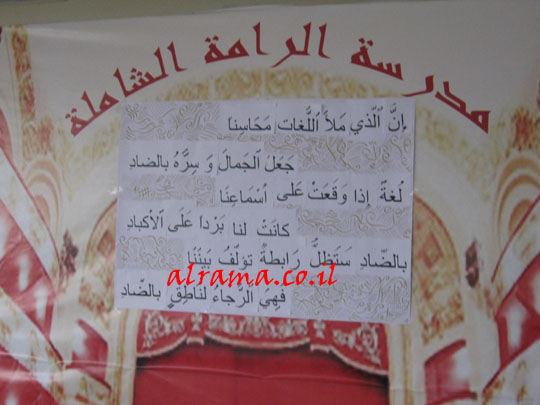 مدرسة الرامة الشاملة
إنَّ ٱلّذي مَلأَ ٱللُّغاتِ مَحَاسِنا
جَعَلَ ٱلجَمالَ وَ سِرَّهُ بالضادِ
لُغَةٌ إذا وَقَعَتْ عَلى أسْماعِنَا
كانَتْ لنا بَرْداً عَلَى الأكبادِ
بالضّادِ سَتَظلُّ رَابِطةً تؤلّفُ بَيْنَنَا
alrama.co.il
فَهِيَ الرَّجاءُ لناطِقٍ بالضّادِ